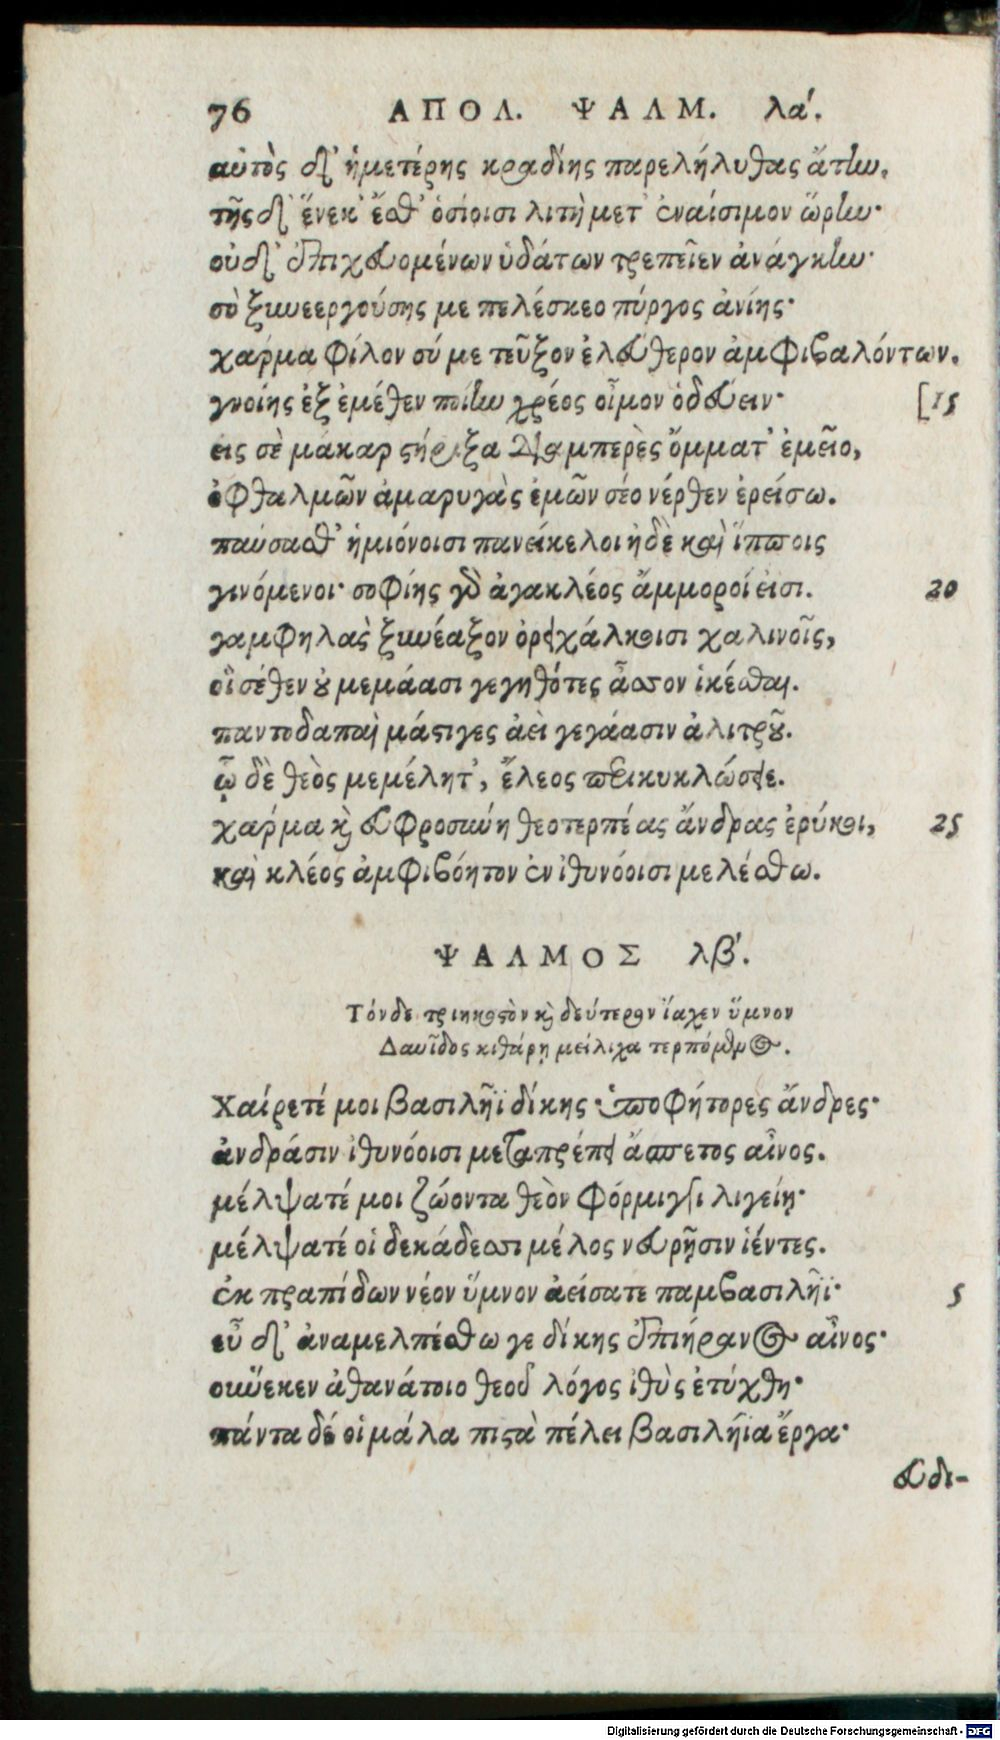 76 ΑΠΟΛ. ΨΑΛΜ. λα´.
αὐτὸς δ' ἡμετέρης κραδίης παρελήλυθας ἄτην.
τῆς δ' ἕνεκ' ἔσθ' ὁσίοισι λιτὴ μετ' ἐναίσιμον ὥρην·
οὐδ' ἐπιχευομένων ὑδάτων τρεπεῖεν ἀνάγκην·
σὺ ξυνεεργούσης με πελέσκεο πύργος ἀνίης·
χάρμα φίλον σύ με τεῦξον ἐλεύθερον ἀμφιβαλόντων.
γνοίης ἐξ ἐμέθεν ποίην χρέος οἶμον ὁδεύειν· [15
εἰς σὲ μάκαρ στήριξα διαμπερὲς ὄμματ' ἐμεῖο,
ὀφθαλμῶν ἀμαρυγὰς ἐμῶν σέο νέρθεν ἐρείσω.
παύσασθ' ἡμιόνοισι πανείκελοι ἠδὲ καὶ ἵπποις
γινόμενοι· σοφίης γὰρ ἀγακλέος ἄμμοροί εἰσι. 20
γαμφηλὰς ξυνέαξον ὀρειχάλκοισι χαλινοῖς,
οἳ σέθεν οὐ μεμάασι γεγηθότες ἆσσον ἱκέσθαι.
παντοδαπαὶ μάστιγες ἀεὶ γεγάασιν ἀλιτροῦ.
ᾧ δὲ θεὸς μεμέλητ', ἔλεος περικυκλώσειε.
χάρμα καὶ εὐφροσύνη θεοτερπέας ἄνδρας ἐρύκοι, 25
καὶ κλέος ἀμφιβόητον ἐν ἰθυνόοισι μελέσθω.
ΨΑΛΜΟΣ λβ´.
Τόνδε τριηκοστὸν καὶ δεύτερον ἴαχεν ὕμνον
Δαυῖδος κιθάρῃ μείλιχα τερπόμενος.
Χαίρετέ μοι βασιλῆϊ δίκης ὑποφήτορες ἄνδρες·
ἀνδράσιν ἰθυνόοισι μεταπρέπει ἄσπετος αἶνος.
μέλψατέ μοι ζώοντα θεὸν φόρμιγγι λιγείῃ·
μέλψατέ οἱ δεκάδεσσι μέλος νευρῇσιν ἱέντες.
ἐκ πραπίδων νέον ὕμνον ἀείσατε παμβασιλῆϊ· 5
εὖ δ' ἀναμελπέσθω γε δίκης ἐπιήρανος αἶνος·
οὕνεκεν ἀθανάτοιο θεοῦ λόγος ἰθὺς ἐτύχθη·
πάντα δέ οἱ μάλα πιστὰ πέλει βασιλήϊα ἔργα·
εὐδι-
Digitalisierung gefördert durch die Deutsche Forschungsgemeinschaft - DFG